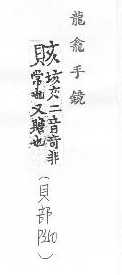 龍龕手鏡
賅
垓亥二音奇非
常也又贍也
(貝部 P350)